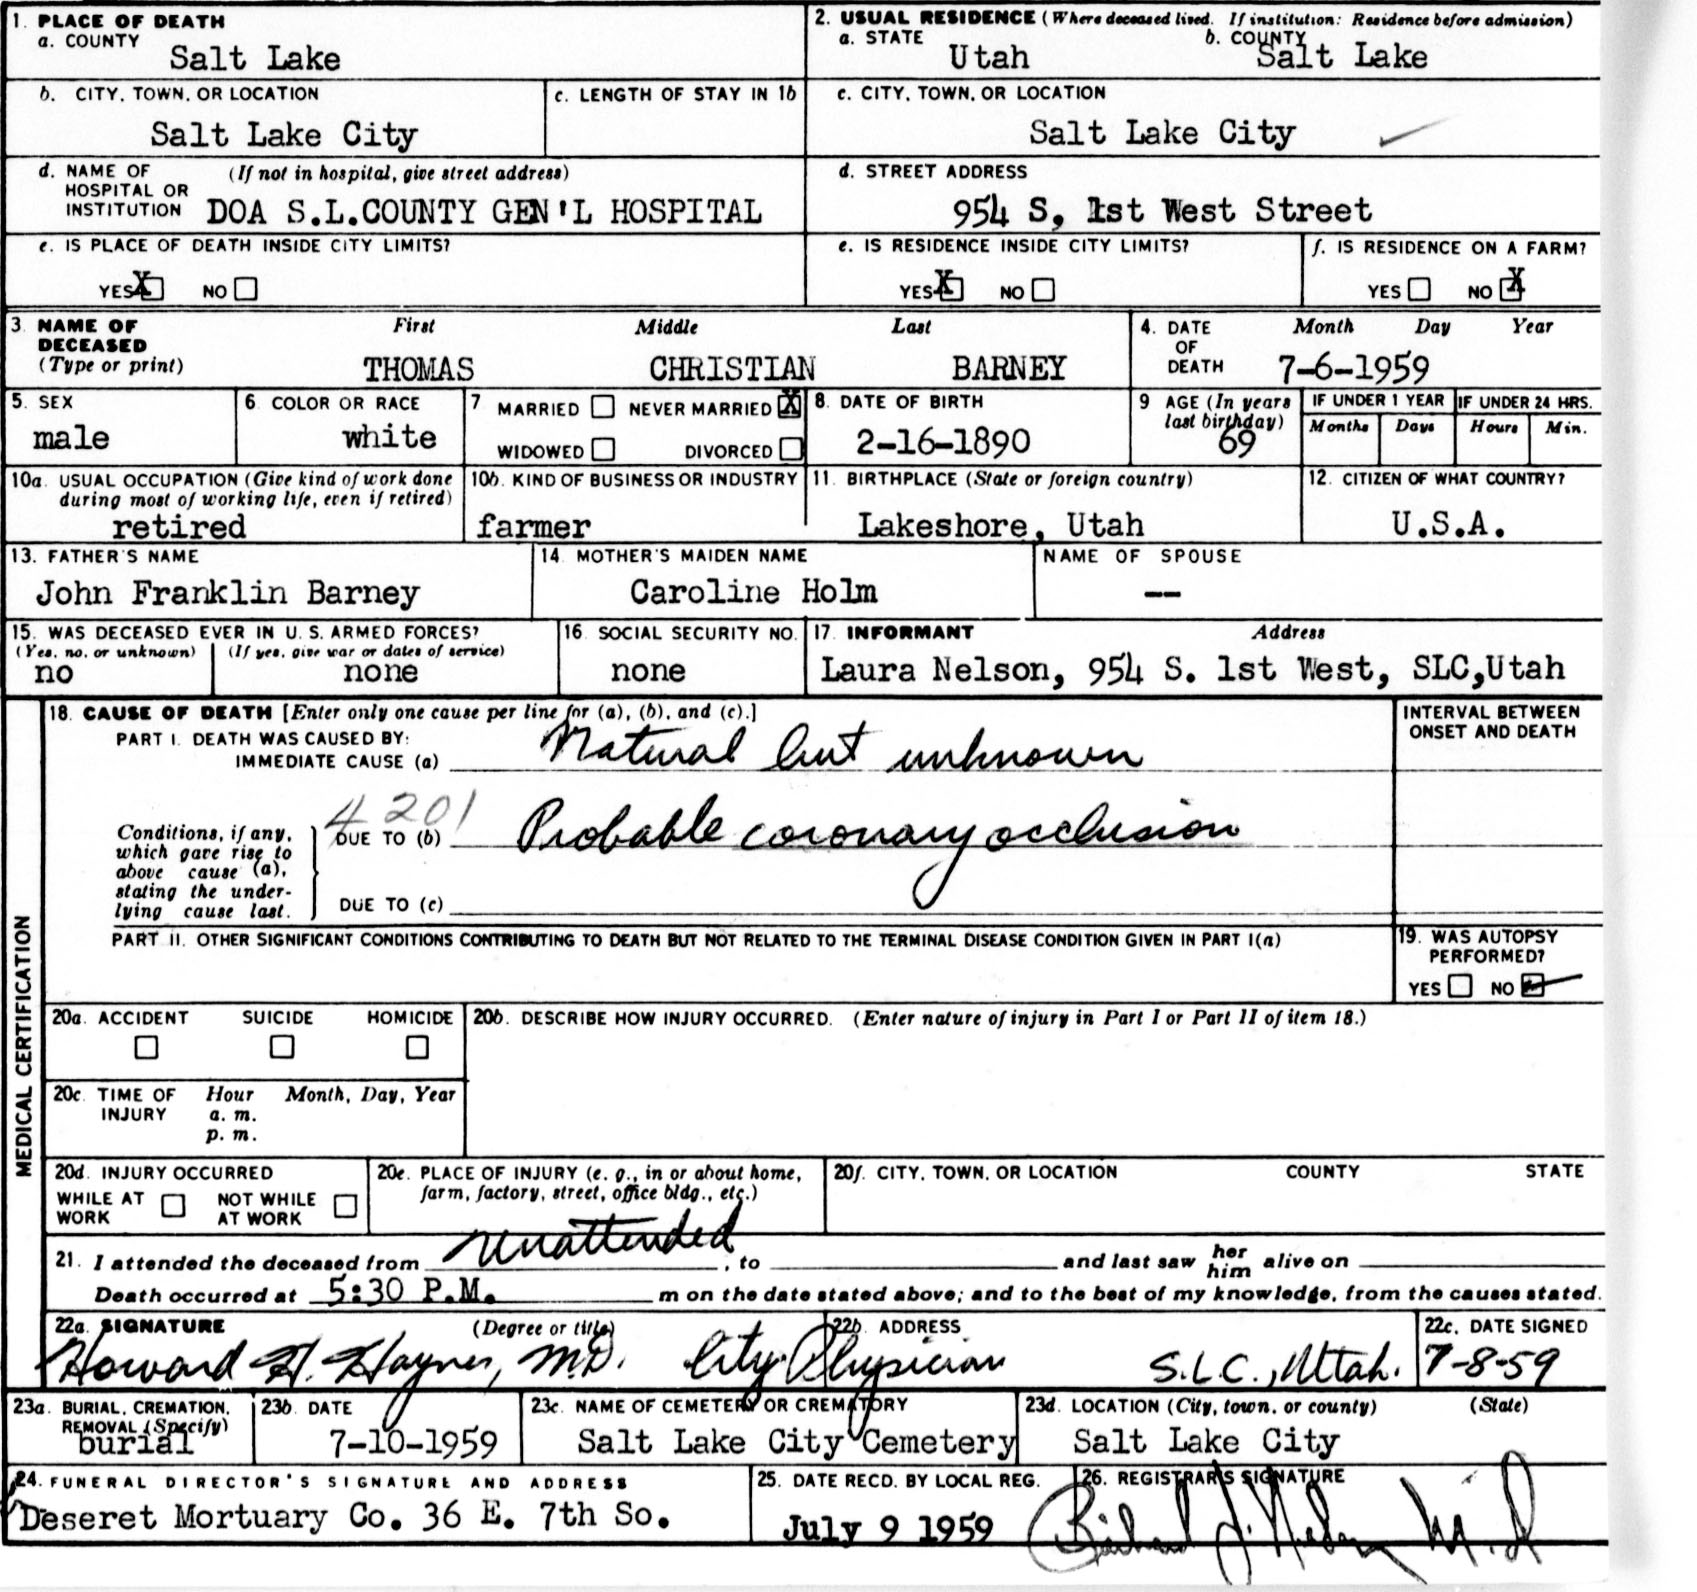 1. PLACE OF DEATH
a. COUNTY
Salt Lake
2. USUAL RESIDENCE (Where deceased lived. If institution: Residence before admission)
a. STATE
Utah
b. COUNTY
Salt Lake
b. CITY, TOWN, OR LOCATION
Salt Lake City
c. LENGTH OF STAY IN 1b
c. CITY, TOWN, OR LOCATION
Salt Lake City
d. NAME OF (If not in hospital, give street address)
HOSPITAL OR
INSTITUTION DOA S.L.COUNTY GEN'L HOSPITAL
d. STREET ADDRESS
954 S, 1st West Street
e. IS PLACE OF DEATH INSIDE CITY LIMITS?
YES X NO
e. IS RESIDENCE INSIDE CITY LIMITS?
YES X NO
f. IS RESIDENCE ON A FARM?
YES NO X
3. NAME OF DECEASED (Type or print)
First Middle Last
THOMAS CHRISTIAN BARNEY
4. DATE OF DEATH
Month Day Year
7-6-1959
5. SEX
male
6. COLOR OR RACE
white
7 MARRIED NEVER MARRIED X
WIDOWED DIVORCED
8. DATE OF BIRTH
2-16-1890
9 AGE (In years last birthday)
69
IF UNDER 1 YEAR
Months Days
IF UNDER 24 HRS.
Hours Min.
10a. USUAL OCCUPATION (Give kind of work done
during most of working life, even if retired)
retired
10b. KIND OF BUSINESS OR INDUSTRY
farmer
11. BIRTHPLACE (State or foreign country)
Lakeshore, Utah
12. CITIZEN OF WHAT COUNTRY?
U.S.A.
13. FATHER'S NAME
John Franklin Barney
14. MOTHER'S MAIDEN NAME
Caroline Holm
NAME OF SPOUSE
--
15. WAS DECEASED EVER IN U. S. ARMED FORCES?
(Yes, no, or unknown) (If yes, give war or dates of service)
no none
16. SOCIAL SECURITY NO.
none
17. INFORMANT Address
Laura Nelson, 954 S. 1st West, SLC,Utah
MEDICAL CERTIFICATION
18. CAUSE OF DEATH [Enter only one cause per line for (a), (b), and (c).]
PART I. DEATH WAS CAUSED BY:
IMMEDIATE CAUSE (a) Natural but unknown
INTERVAL BETWEEN
ONSET AND DEATH
Conditions, if any,
which gave rise to
above cause (a),
stating the under-
lying cause last.
4201
DUE TO (b) Probable coronary occlusion
DUE TO (c)
PART II. OTHER SIGNIFICANT CONDITIONS CONTRIBUTING TO DEATH BUT NOT RELATED TO THE TERMINAL DISEASE CONDITION GIVEN IN PART I(a)
19. WAS AUTOPSY
PERFORMED?
YES NO
20a. ACCIDENT SUICIDE HOMICIDE
20b. DESCRIBE HOW INJURY OCCURRED. (Enter nature of injury in Part I or Part II of item 18.)
20c. TIME OF INJURY Hour Month, Day, Year
a. m.
p. m.
20d. INJURY OCCURRED
WHILE AT WORK NOT WHILE AT WORK
20e. PLACE OF INJURY (e. g., in or about home,
farm, factory, street, office bldg., etc.)
20f. CITY, TOWN, OR LOCATION COUNTY STATE
21. I attended the deceased from unattended, to and last saw her him alive on
Death occurred at 5:30 P.M. m on the date stated above; and to the best of my knowledge, from the causes stated.
22a. SIGNATURE (Degree or title)
Howard H. Haynes, M.D. City Physician
22b. ADDRESS
S.L.C., Utah.
22c. DATE SIGNED
7-8-59
23a. BURIAL, CREMATION,
REMOVAL (Specify)
burial
23b. DATE
7-10-1959
23c. NAME OF CEMETERY OR CREMATORY
Salt Lake City Cemetery
23d. LOCATION (City, town, or county) (State)
Salt Lake City
24. FUNERAL DIRECTOR'S SIGNATURE AND ADDRESS
Deseret Mortuary Co. 36 E. 7th So.
25. DATE RECD. BY LOCAL REG.
July 9 1959
26. REGISTRAR'S SIGNATURE
M.D